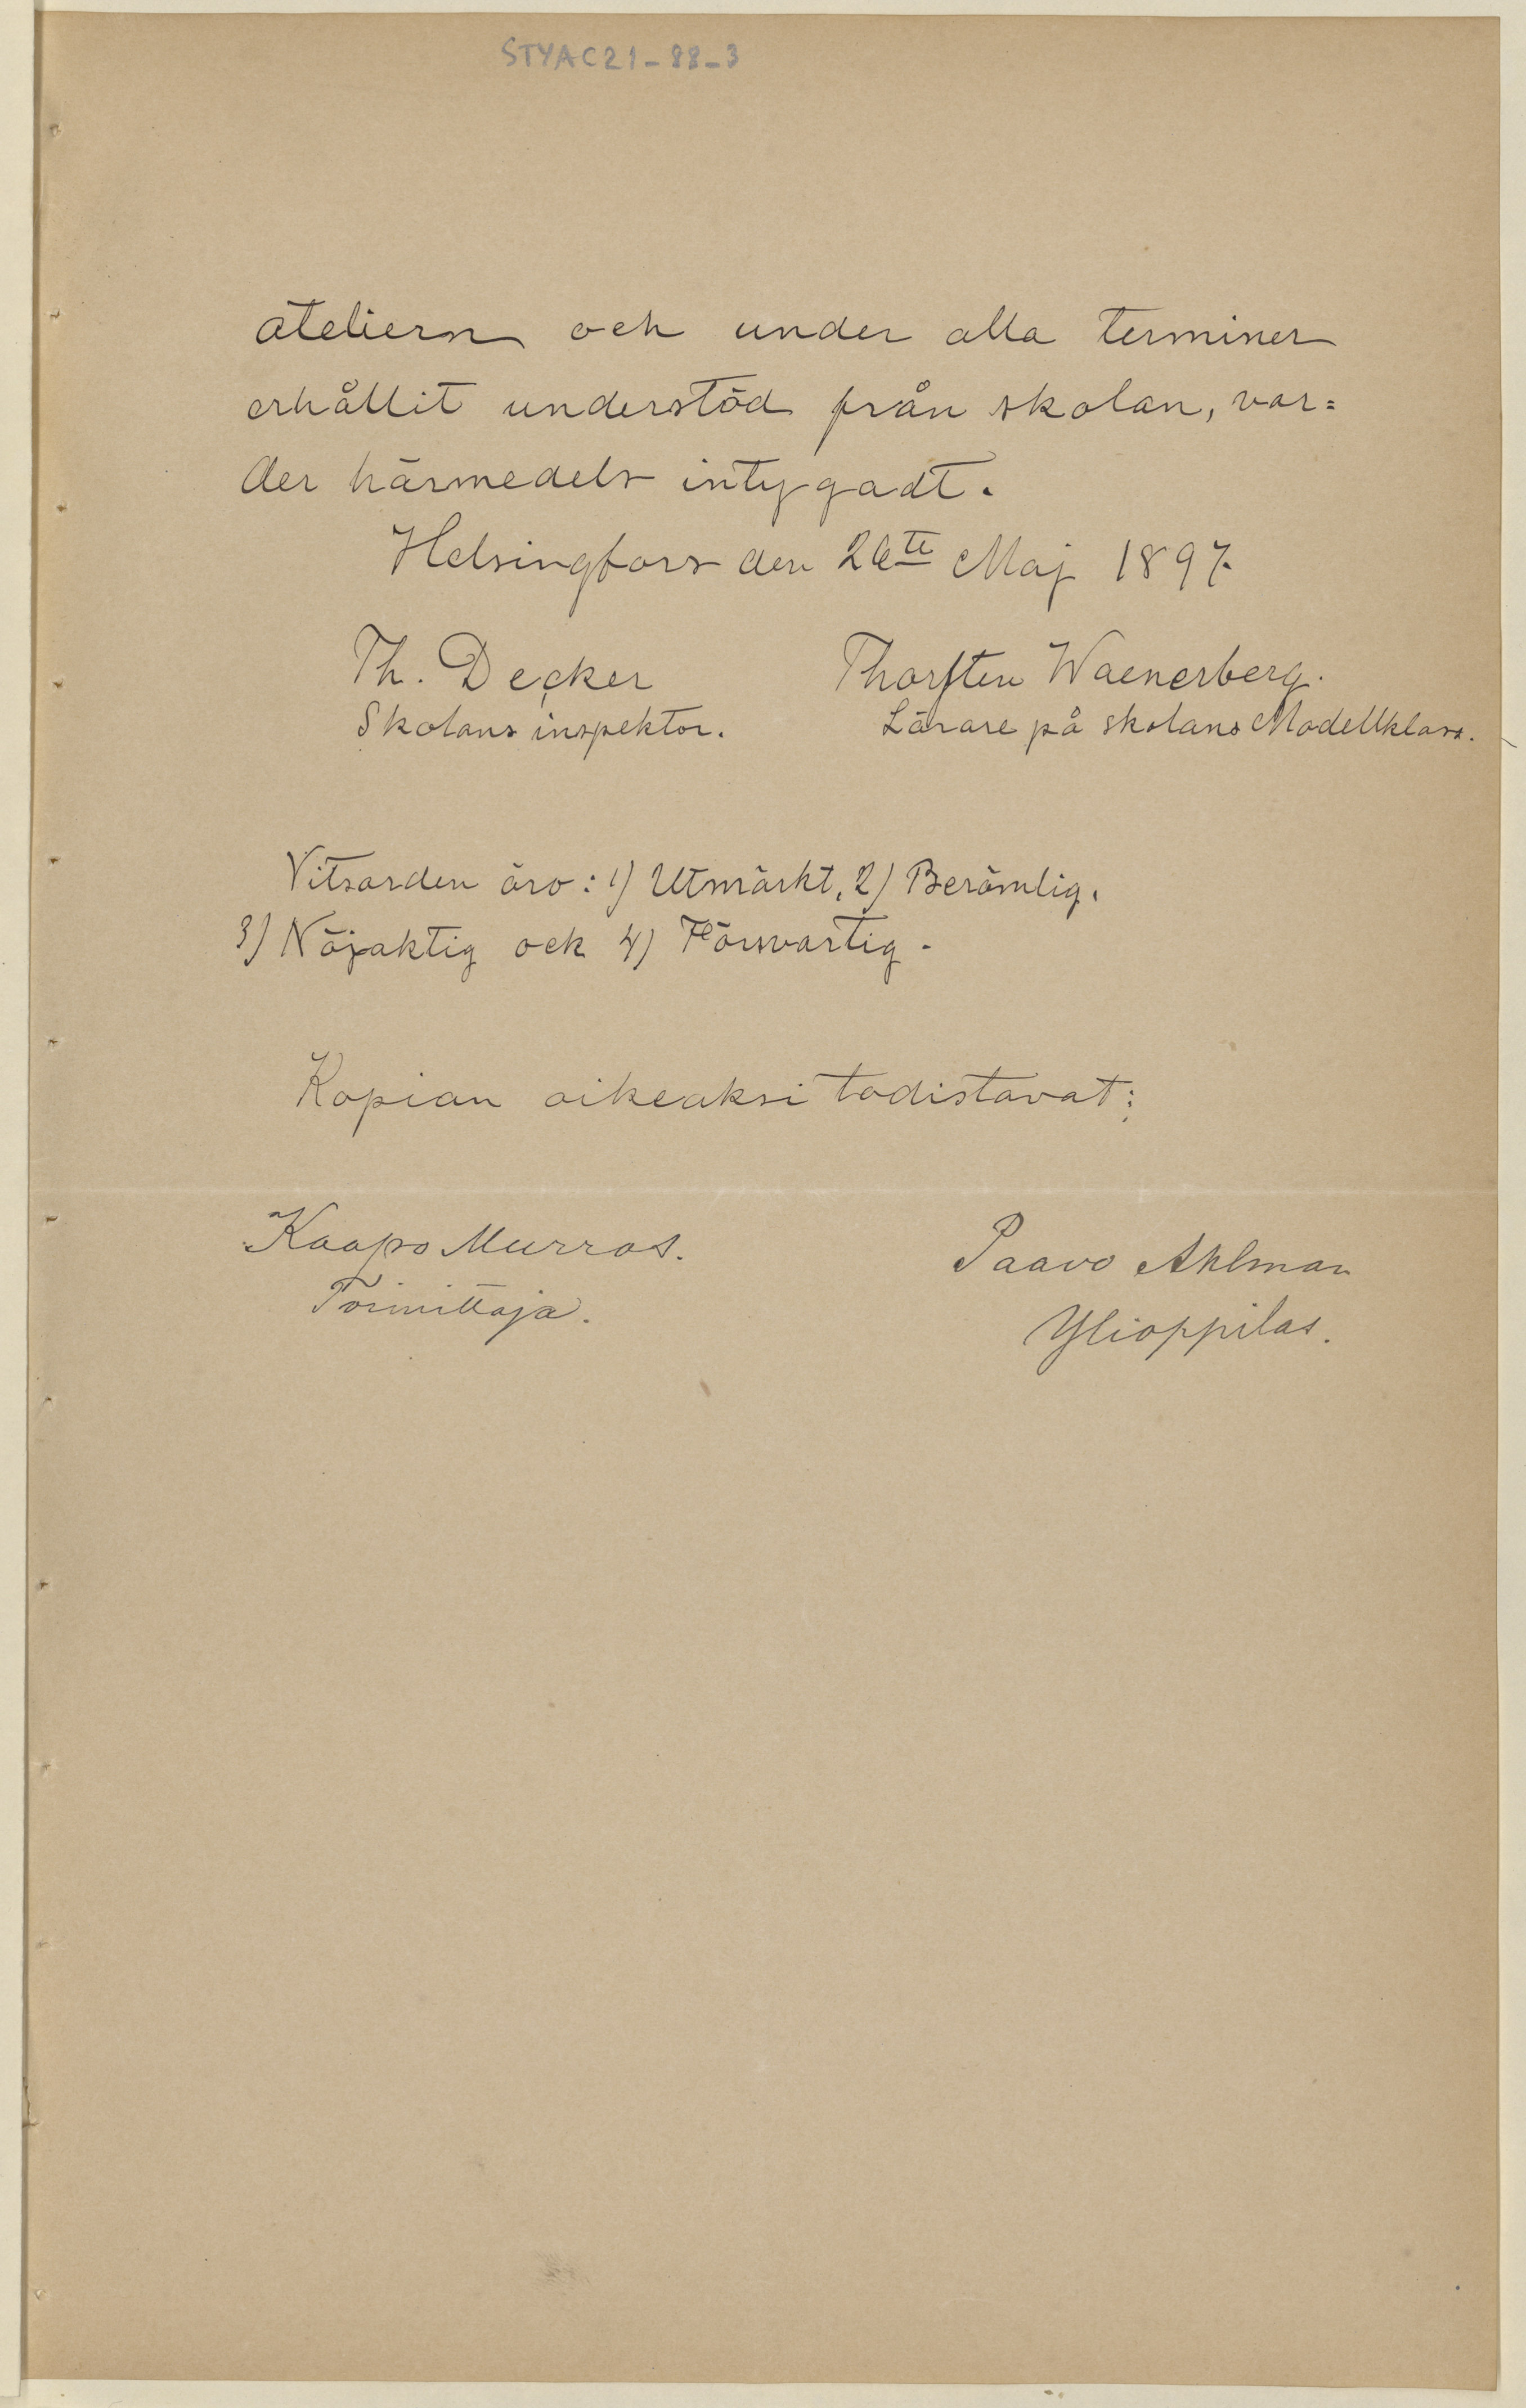 STYAC21-88-3
ateliern och under alla terminer
erhållit understöd från skolan, var=
der härmedels intygadt.
Helsingfors den 26te Maj 1897.
Th. Decker
Skolans inspektor.
Thorsten Waenerberg.
Lärare på skolans Modellklass.
Vitsorden äro: 1) Utmärkt, 2) Berömlig,
3) Nöjaktig och 4) Försvarlig.
Kopian oikeaksi todistavat:
Kaapo Murros.
Toimittaja.
Paavo Ahlman
Ylioppilas.